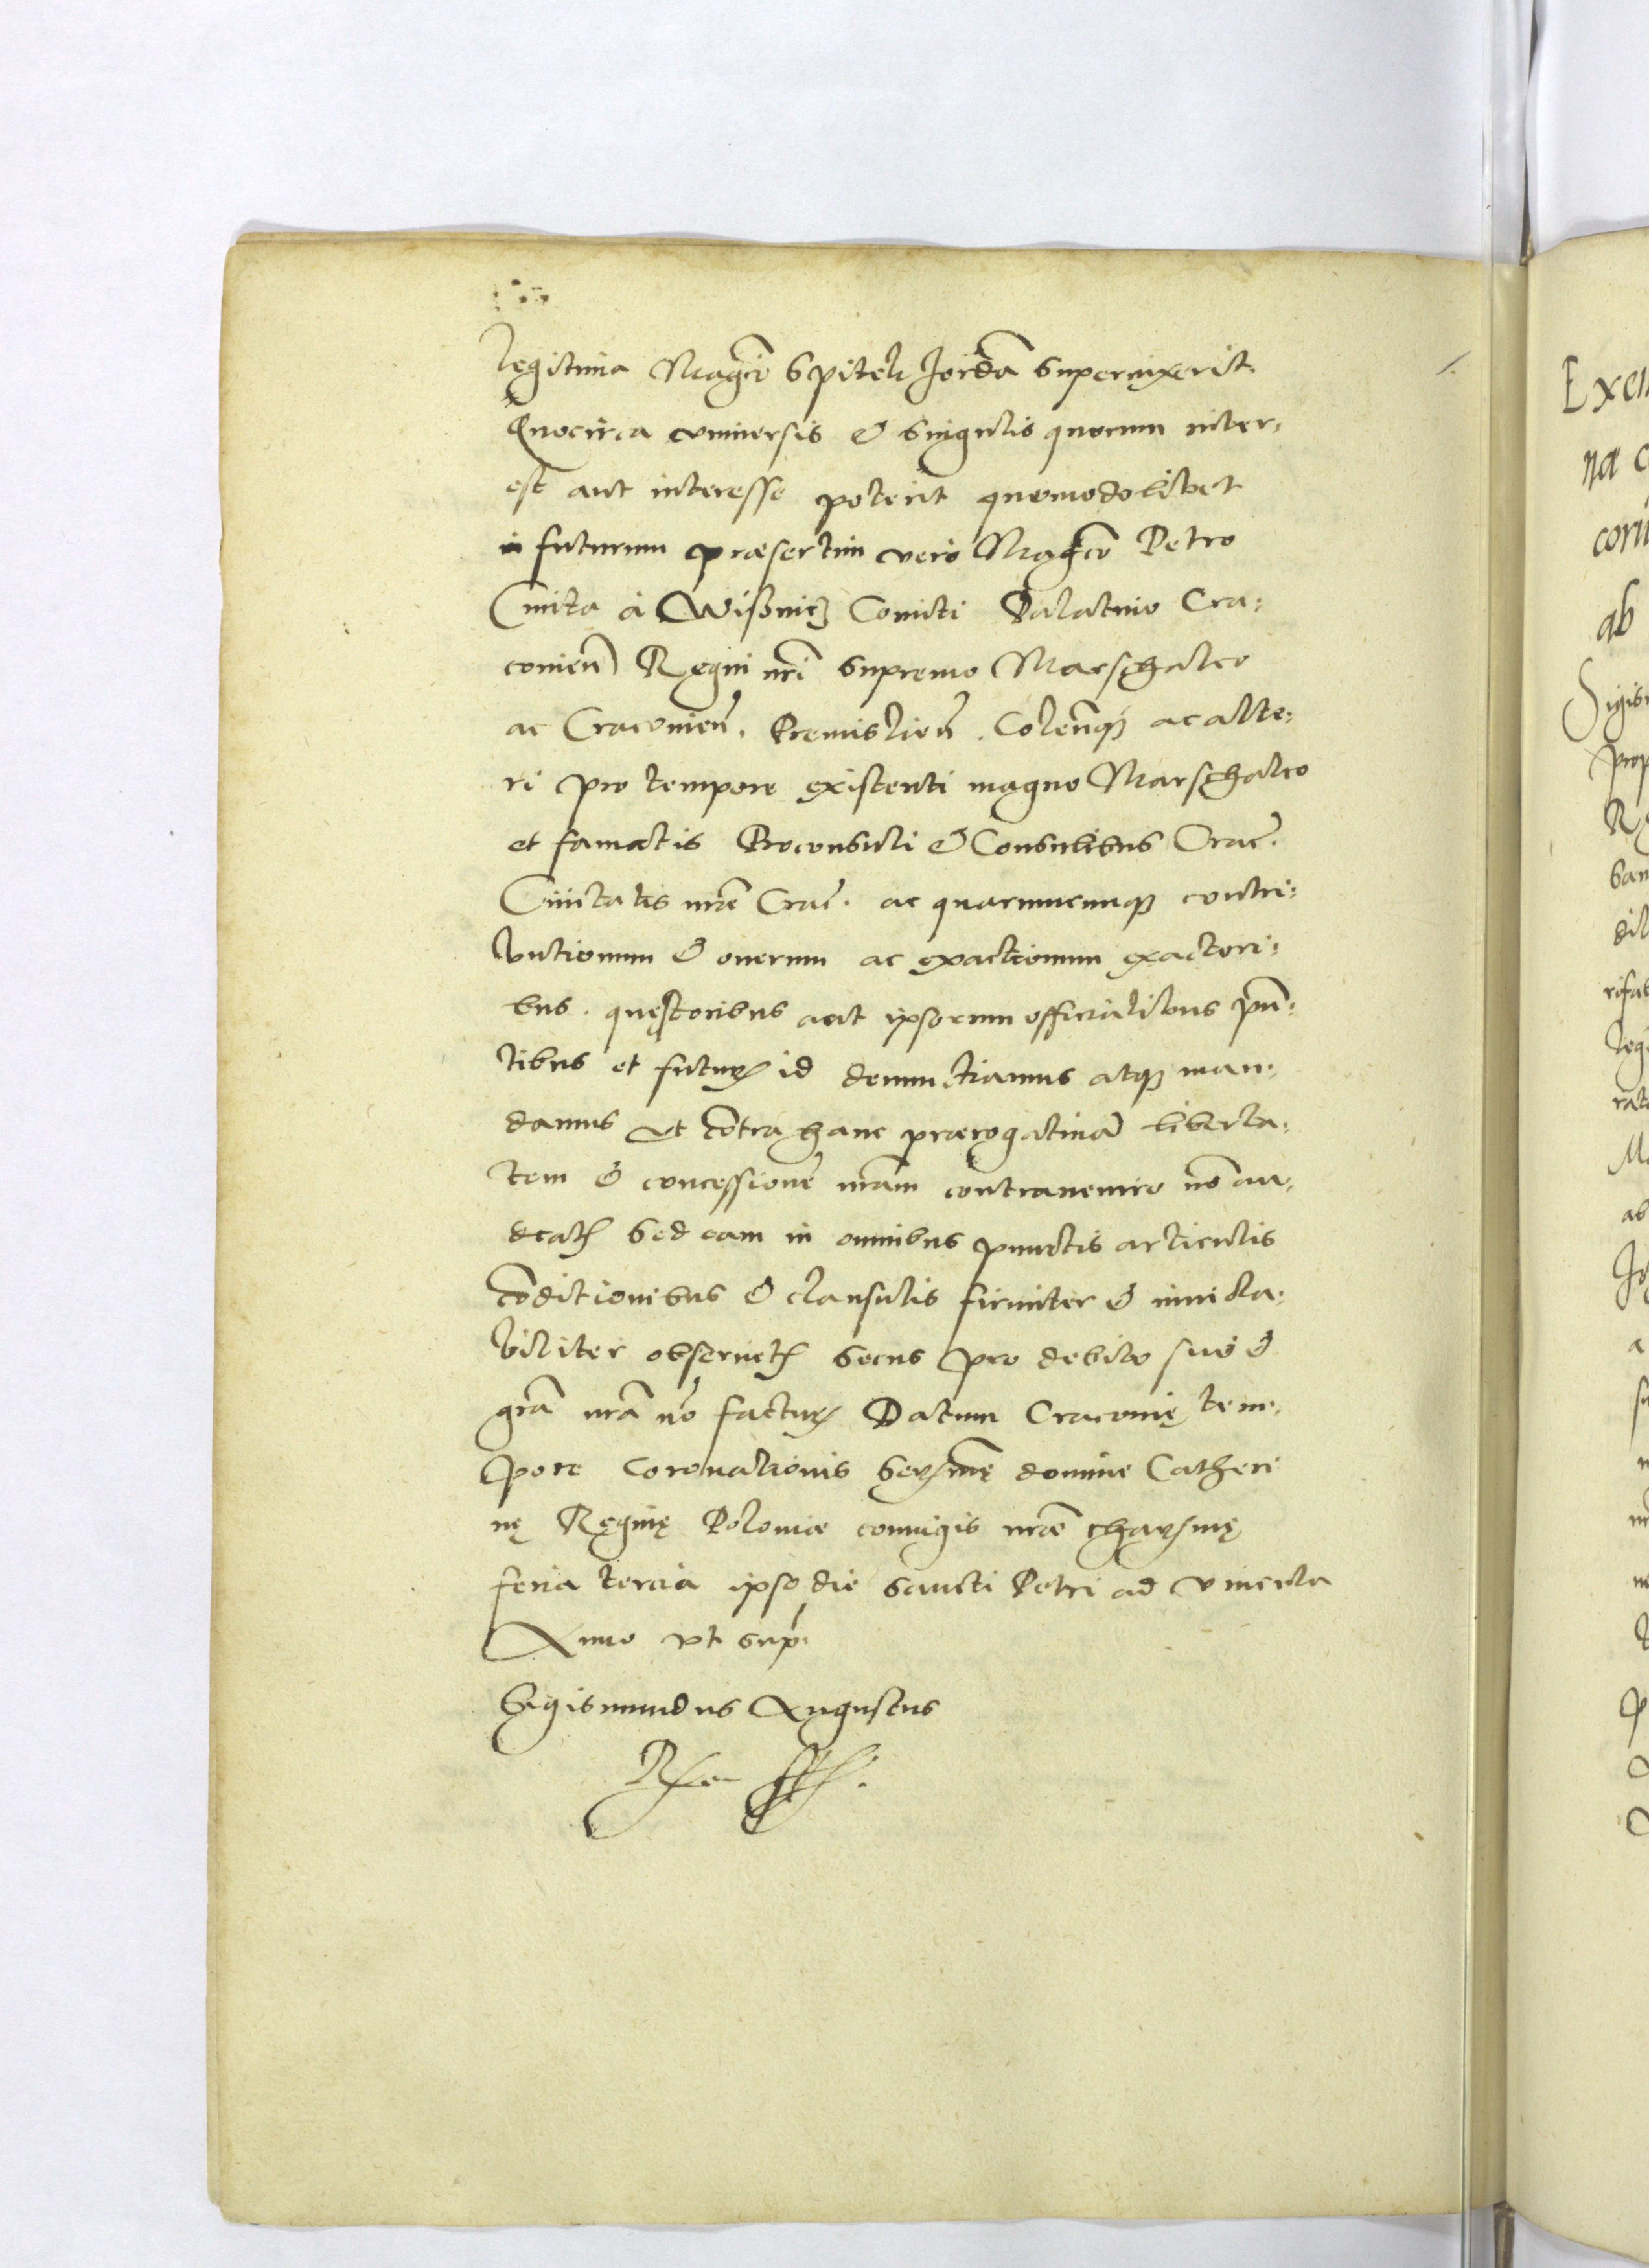 legitima Magci Spitek Jordā supervixerit.
Quocirca universis & singulis quorum inter:
est aut interesse poterit quomodolibet
in futurum præsertim vero Magco Petro
Cmita à Wisnicz Comiti Palatino Cra:
covien̄ Regni nri supremo Marschalco
ac Cracovien̄. Premislien̄. Colenq3 ac alte:
ri pro tempore existenti magno Marschalco
et famatis Proconsuli & Consulibus Crac.
Civitatis nræ Crac. ac quarumcunq3 contri:
butionum & onerum ac exactionum exactori:
bus. quęstoribus aut ipsorum officialibus pn̄:
tibus et futur. id denunctiamus atq3 man:
damus ut cōtra hanc prærogativā liberta:
tem & concessionē nram contravenire nō au:
deat. sed eam in omnibus punctis articulis
cōditionibus & clausulis firmiter & inviola:
biliter observet. secus pro debito suo &
gra nra nō factur. Datum Cracovię tem:
pore coronationis Serzmę domine Catheri
nę Reginę Poloniæ coniugis nræ charzmę
feria tercia ipso die Sancti Petri ad vincula
Anno ut sup.
Sigismundus Augustus
Rex sst.
Exem
næ c
corū
ab
Sigis
prop
san
dil
leg
rat
ab
Jo